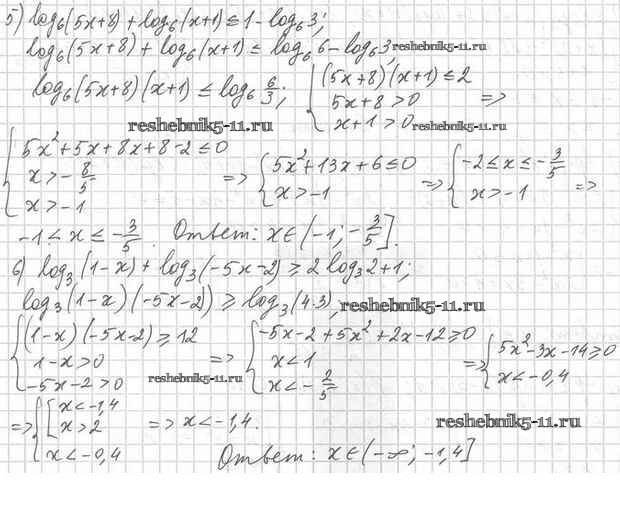 5) log₆(5x+8) + log₆(x+1) ≤ 1 - log₆3;
log₆(5x+8) + log₆(x+1) ≤ log₆6 - log₆3; reshebnik5-11.ru
log₆(5x+8)(x+1) ≤ log₆ 6/3; { (5x+8)(x+1) ≤ 2
5x+8 > 0 =>
x+1 > 0 reshebnik5-11.ru
reshebnik5-11.ru
{ 5x²+5x+8x+8-2 ≤ 0
x > -8/5
x > -1
=> { 5x²+13x+6 ≤ 0
x > -1
=> { -2 ≤ x ≤ -3/5
x > -1 =>
-1 < x ≤ -3/5. Ответ: x∈(-1; -3/5].
6) log₃(1-x) + log₃(-5x-2) ≥ 2log₃2+1;
log₃(1-x)(-5x-2)) ≥ log₃(4·3); reshebnik5-11.ru
{ (1-x)(-5x-2) ≥ 12
1-x > 0
-5x-2 > 0 reshebnik5-11.ru
=> { -5x-2+5x²+2x-12 ≥ 0
x < 1
x < -2/5
=> { 5x²-3x-14 ≥ 0
x < -0,4
=> { [ x < -1,4
x > 2
x < -0,4
=> x < -1,4. reshebnik5-11.ru
Ответ: x∈(-∞; -1,4]